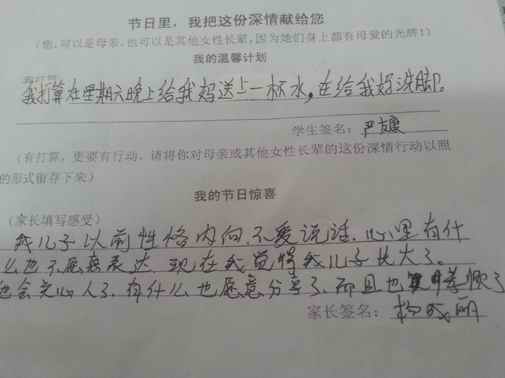 节日里，我把这份深情献给您
（您，可以是母亲，也可以是其他女性长辈，因为她们身上都有母爱的光辉！）
我的温馨计划
我打算在星期六晚上给我妈送上一杯水，在给我妈洗脚。
学生签名：严
（有打算，更要有行动。请将你对母亲或其他女性长辈的这份深情行动以照
的形式留存下来）
我的节日惊喜
（家长填写感受）
我儿子以前性格内向，不爱说话，心里有什
么也不愿意表达，现在我觉得我儿子长大了。
也会关心人了，有什么也愿意分享了，而且也懂事了
家长签名：杨丽